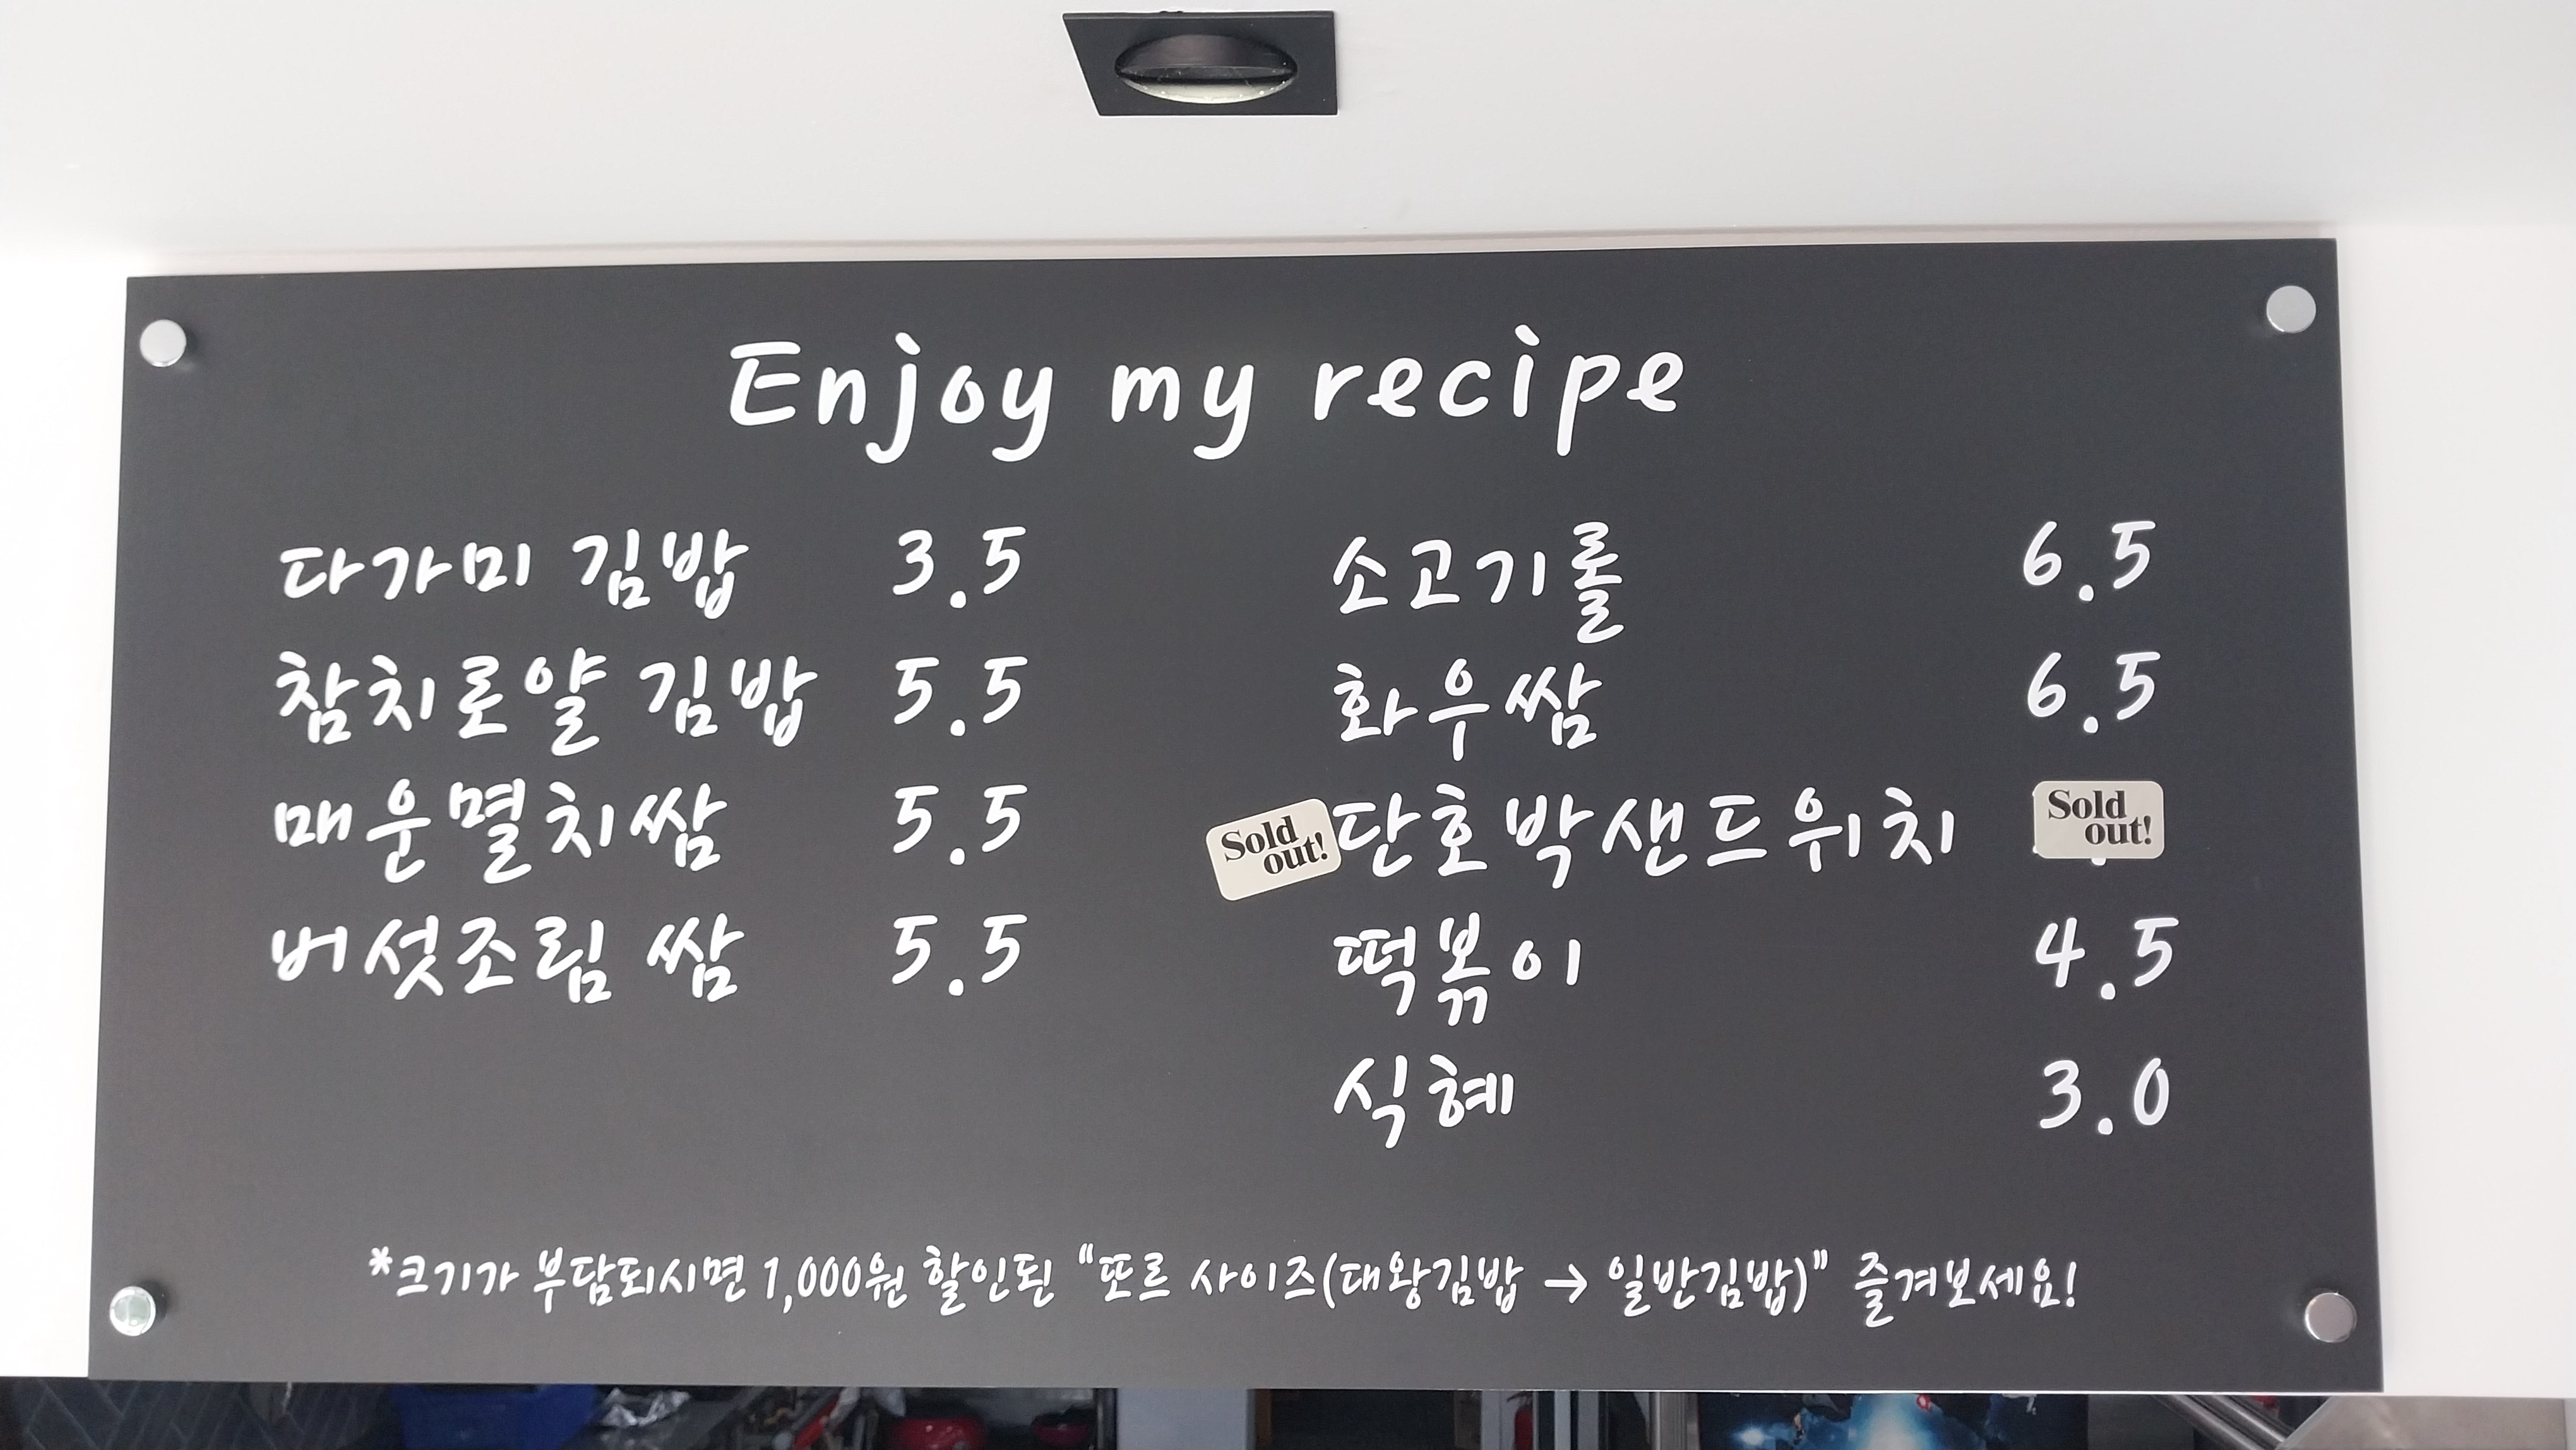 Enjoy my recipe
다가미 김밥 3.5
참치로얄 김밥 5.5
매운멸치쌈 5.5
버섯조림 쌈 5.5
소고기롤 6.5
화우쌈 6.5
Sold out! 단호박샌드위치 Sold out!
떡볶이 4.5
식혜 3.0
*크기가 부담되시면 1,000원 할인된 "또르 사이즈(대왕김밥 → 일반김밥)" 즐겨보세요!